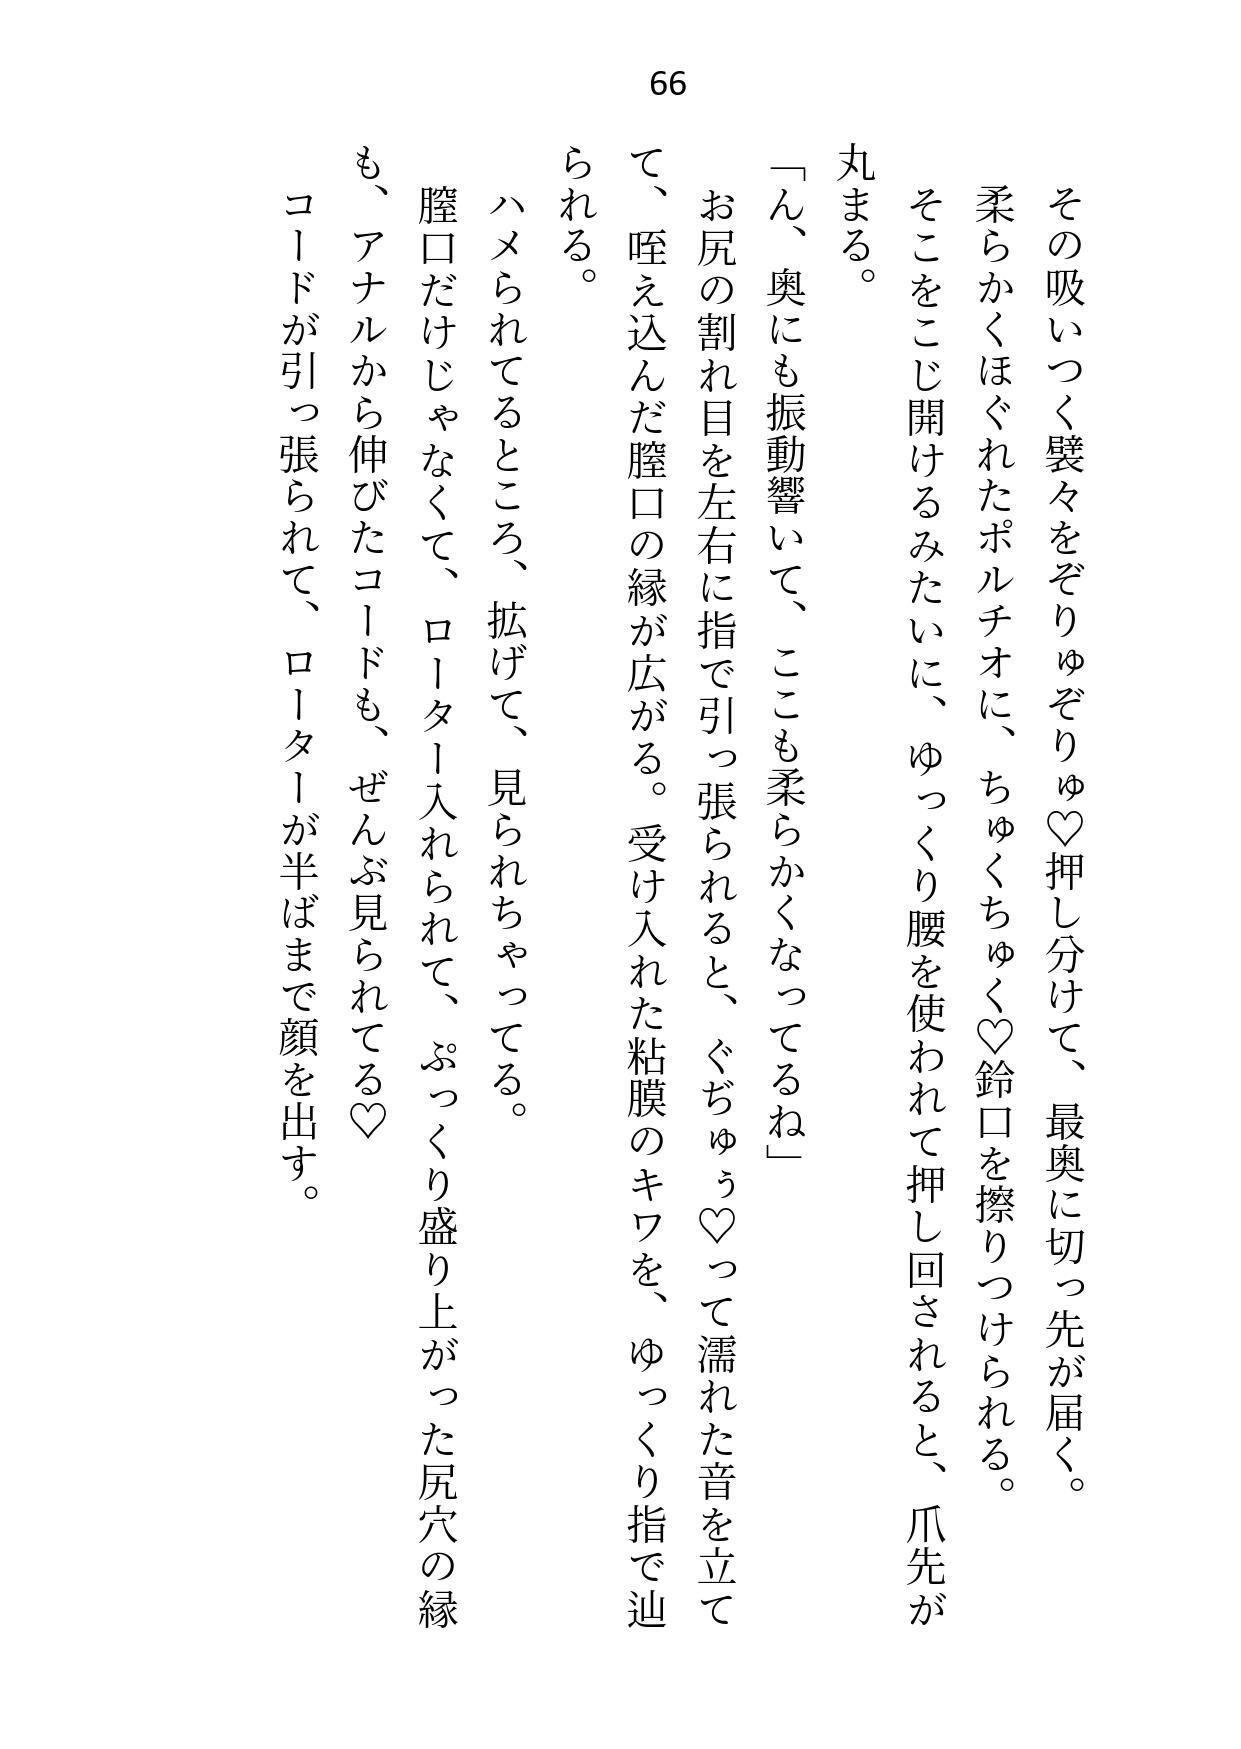 66
その吸いつく襞々をぞりゅぞりゅ♡押し分けて、最奥に切っ先が届く。
柔らかくほぐれたポルチオに、ちゅくちゅく♡鈴口を擦りつけられる。
そこをこじ開けるみたいに、ゆっくり腰を使われて押し回されると、爪先が
丸まる。
「ん、奥にも振動響いて、ここも柔らかくなってるね」
お尻の割れ目を左右に指で引っ張られると、ぐぢゅぅ♡って濡れた音を立て
て、咥え込んだ膣口の縁が広がる。受け入れた粘膜のキワを、ゆっくり指で辿
られる。
ハメられてるところ、拡げて、見られちゃってる。
膣口だけじゃなくて、ローター入れられて、ぷっくり盛り上がった尻穴の縁
も、アナルから伸びたコードも、ぜんぶ見られてる♡
コードが引っ張られて、ローターが半ばまで顔を出す。